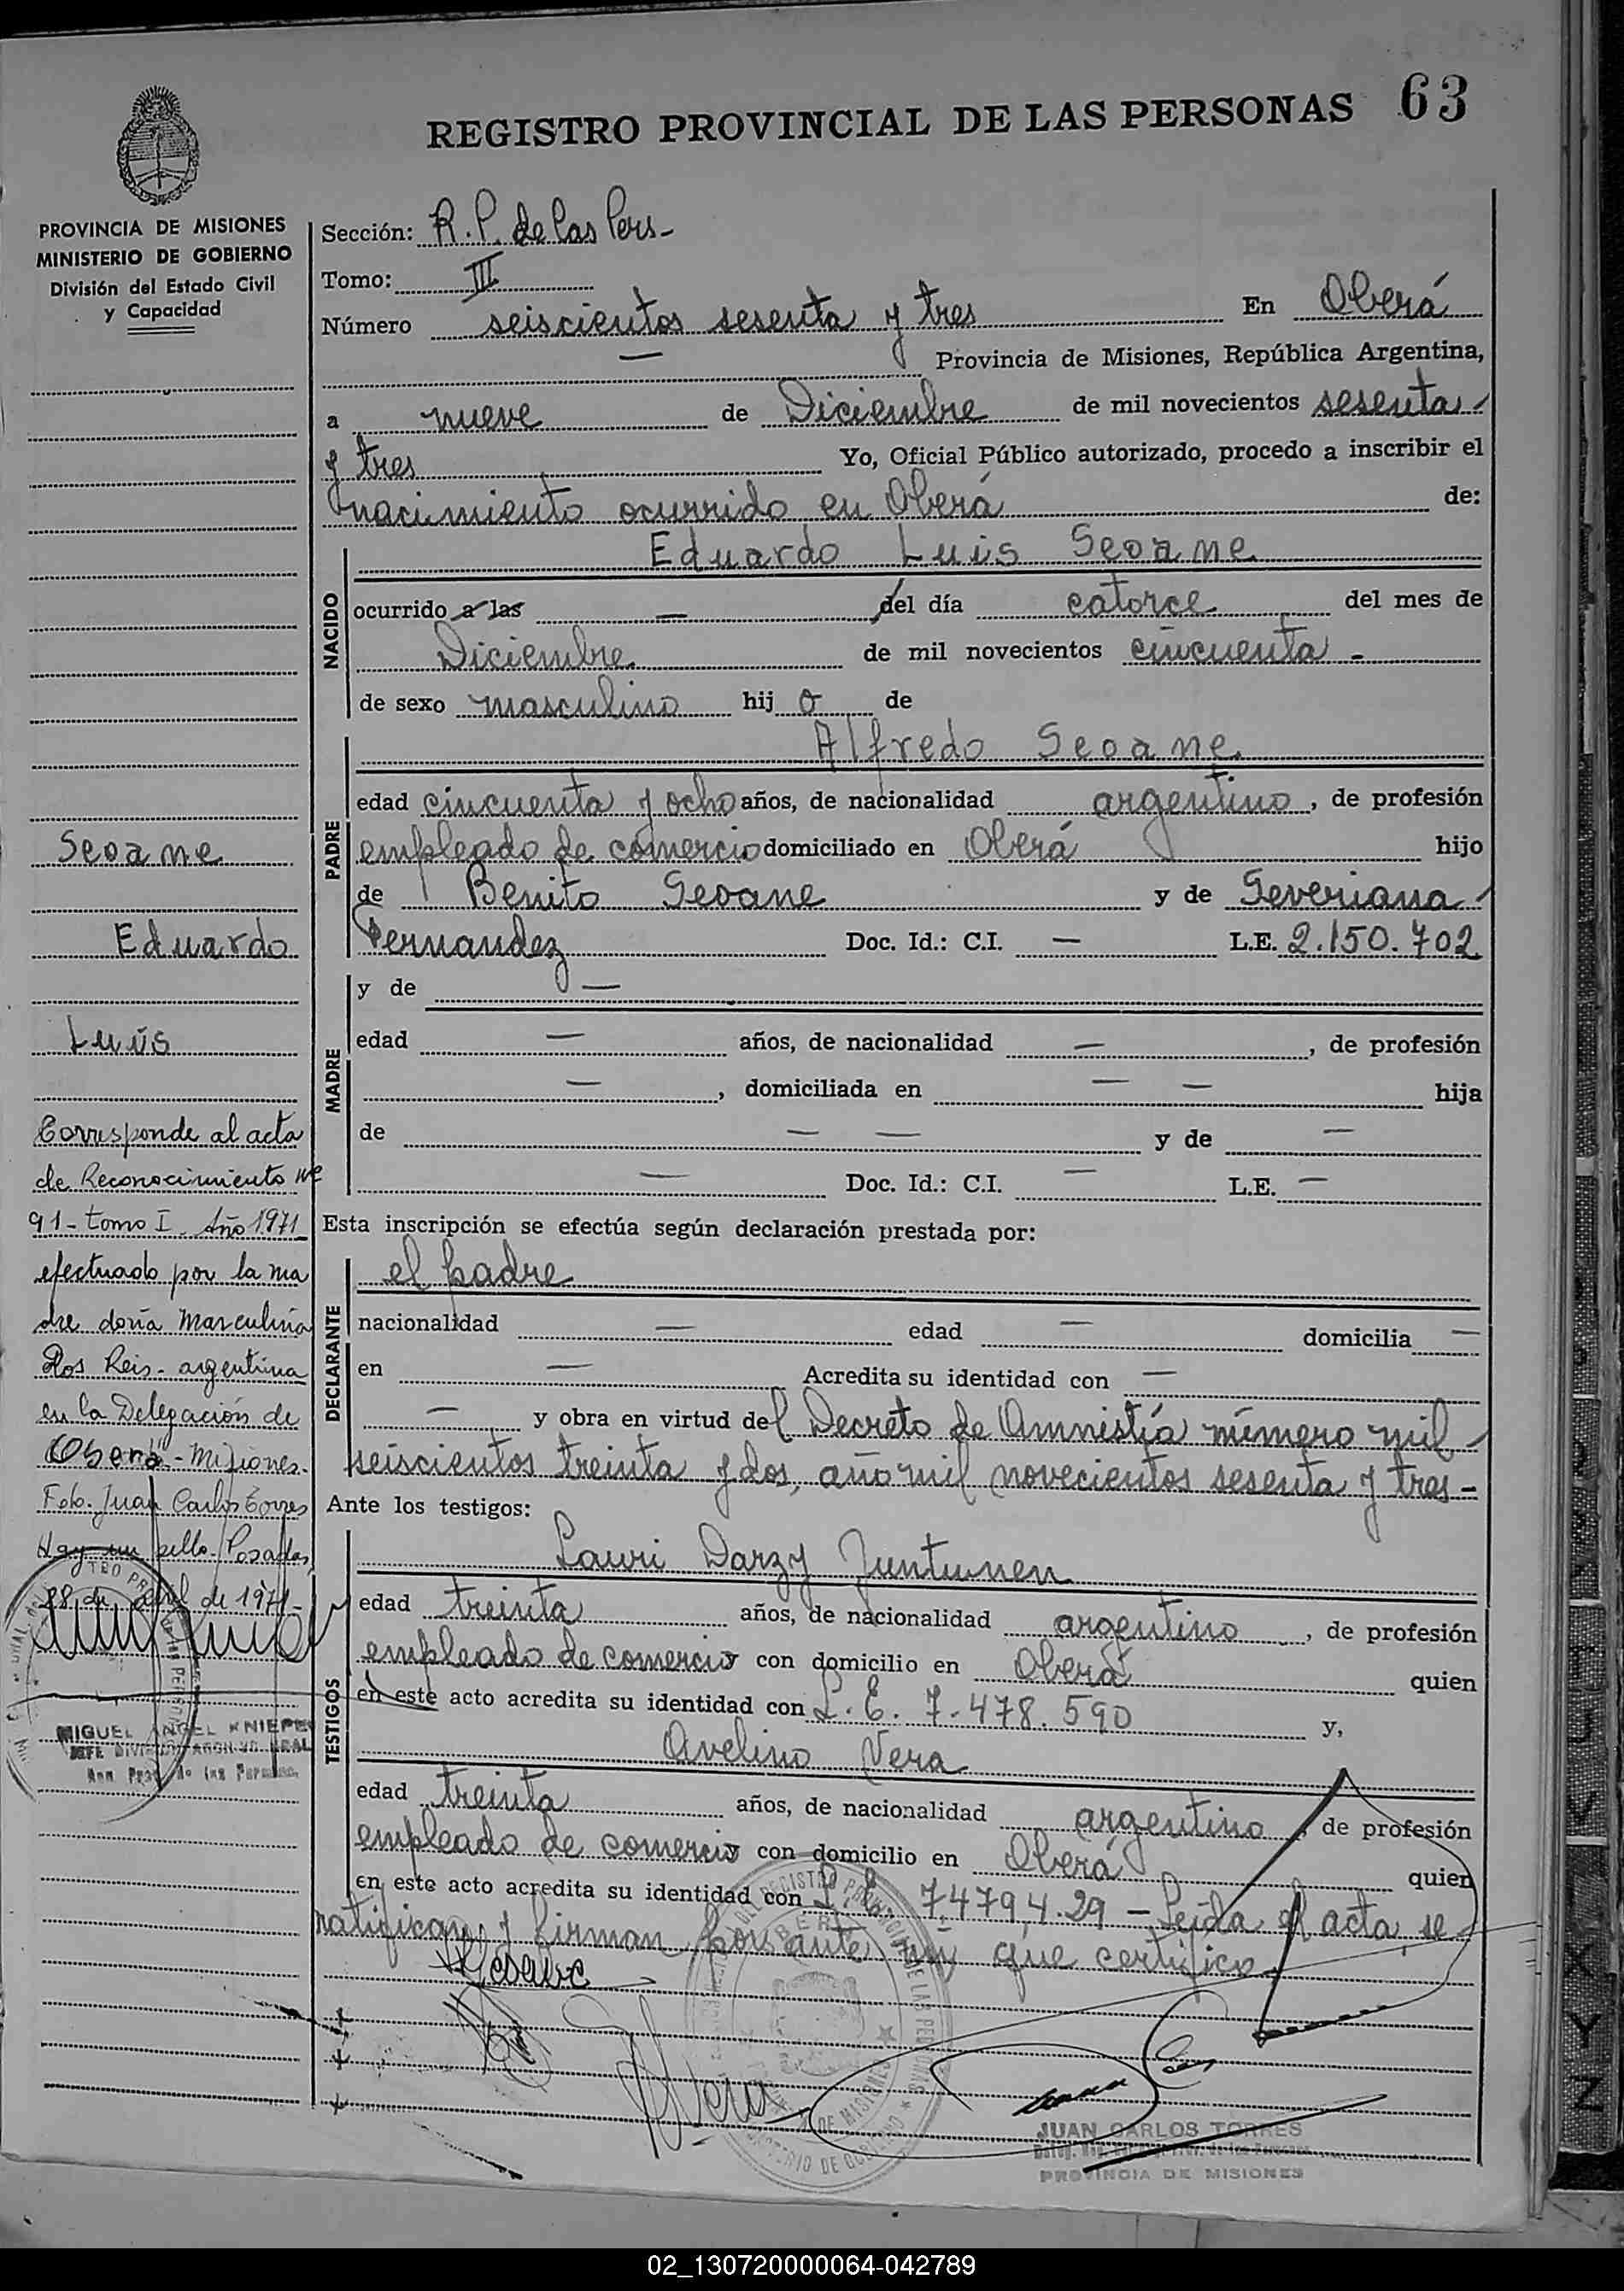 REGISTRO PROVINCIAL DE LAS PERSONAS 63
PROVINCIA DE MISIONES
MINISTERIO DE GOBIERNO
División del Estado Civil
y Capacidad
Sección: R.P. de las Pers-
Tomo: III
Número seiscientos sesenta y tres En Oberá
— Provincia de Misiones, República Argentina,
a nueve de Diciembre de mil novecientos sesenta
y tres Yo, Oficial Público autorizado, procedo a inscribir el
nacimiento ocurrido en Oberá de:
NACIDO
Eduardo Luis Seoane
ocurrido a las — del día catorce del mes de
Diciembre de mil novecientos cincuenta -
de sexo masculino hijo de
PADRE
Alfredo Seoane
edad cincuenta y ocho años, de nacionalidad argentino, de profesión
empleado de comercio domiciliado en Oberá hijo
de Benito Seoane y de Severiana
Fernandez Doc. Id.: C.I. — L.E. 2.150.702
MADRE
y de —
edad — años, de nacionalidad —, de profesión
—, domiciliada en — — hija
de — — y de —
— Doc. Id.: C.I. — L.E. —
Esta inscripción se efectúa según declaración prestada por:
DECLARANTE
el padre
nacionalidad — edad — domicilia —
en — Acredita su identidad con —
— y obra en virtud del Decreto de Amnistía número mil
seiscientos treinta y dos, año mil novecientos sesenta y tres -
Ante los testigos:
TESTIGOS
Lauri Darzy Juntunen
edad treinta años, de nacionalidad argentino, de profesión
empleado de comercio con domicilio en Oberá quien
en este acto acredita su identidad con L.E. 7.478.590 y,
Avelino Vera
edad treinta años, de nacionalidad argentino, de profesión
empleado de comercio con domicilio en Oberá quien
en este acto acredita su identidad con L.E. 7.4794.29 - Leida el acta, se
ratifican y firman por ante mí que certifico.
Seoane
Eduardo
Luis
Corresponde al acta
de Reconocimiento Nº
91 - tomo I - Año 1971
efectuado por la ma
dre doña Marculina
Dos Reis - argentina
en la Delegación de
Oberá - Misiones.
Fdo. Juan Carlos Torres
Hay un sello. Posadas,
28 de abril de 1971 -
MIGUEL ANGEL KNIEPE
JEFE DIVISION ARCHIVO GRAL
Vera
JUAN CARLOS TORRES
PROVINCIA DE MISIONES
02_130720000064-042789